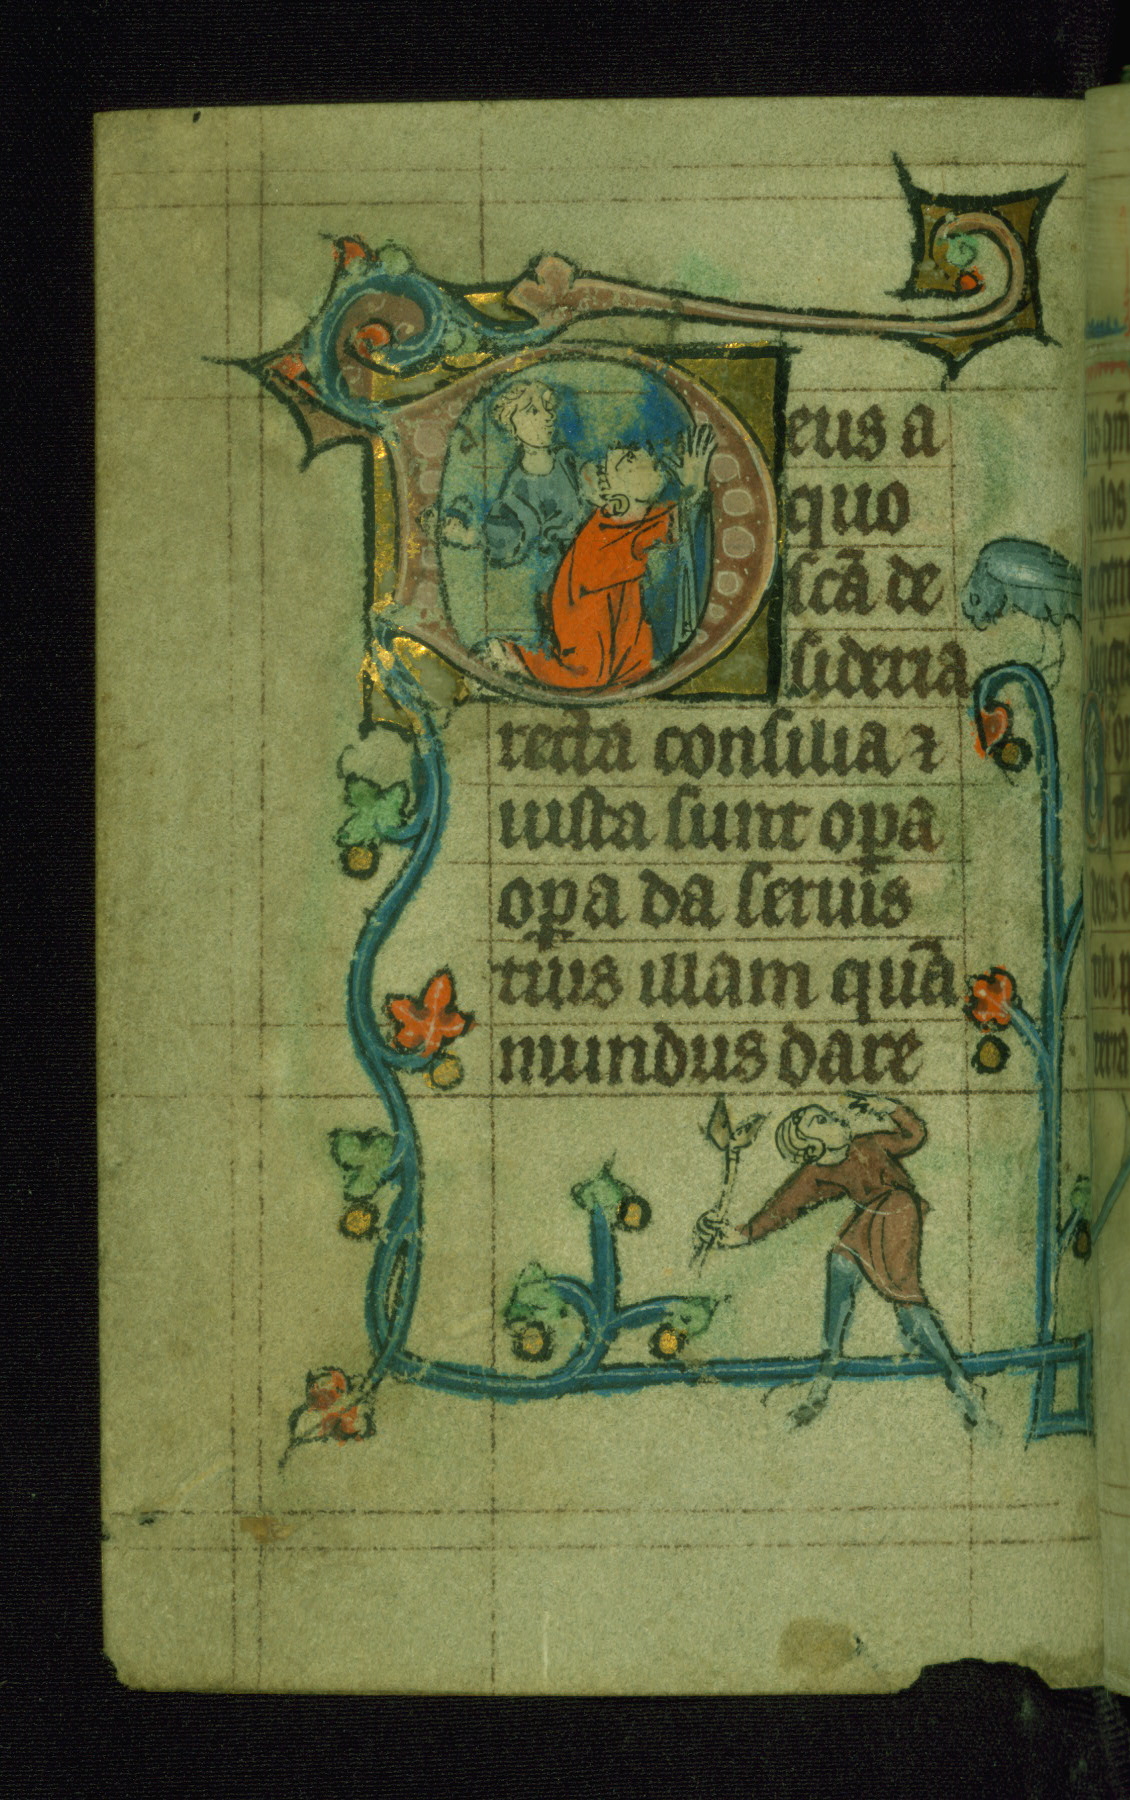 Deus a
quo
scā de
sideria
recta consilia ⁊
iusta sunt oꝑa
oꝑa da seruis
tuis illam quā
mundus dare